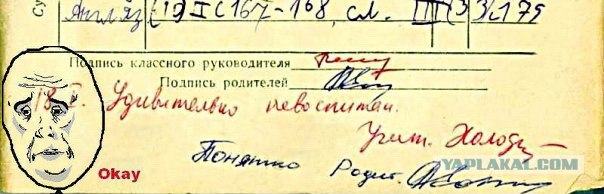 Су
Англ яз (12) I с 167-168, сл. III (3 3/с 179
Подпись классного руководителя
Подпись родителей
18.I. Удивительно невоспитан.
Учит. Холод
Понятно Родит.
Okay
YAPLAKAL.COM